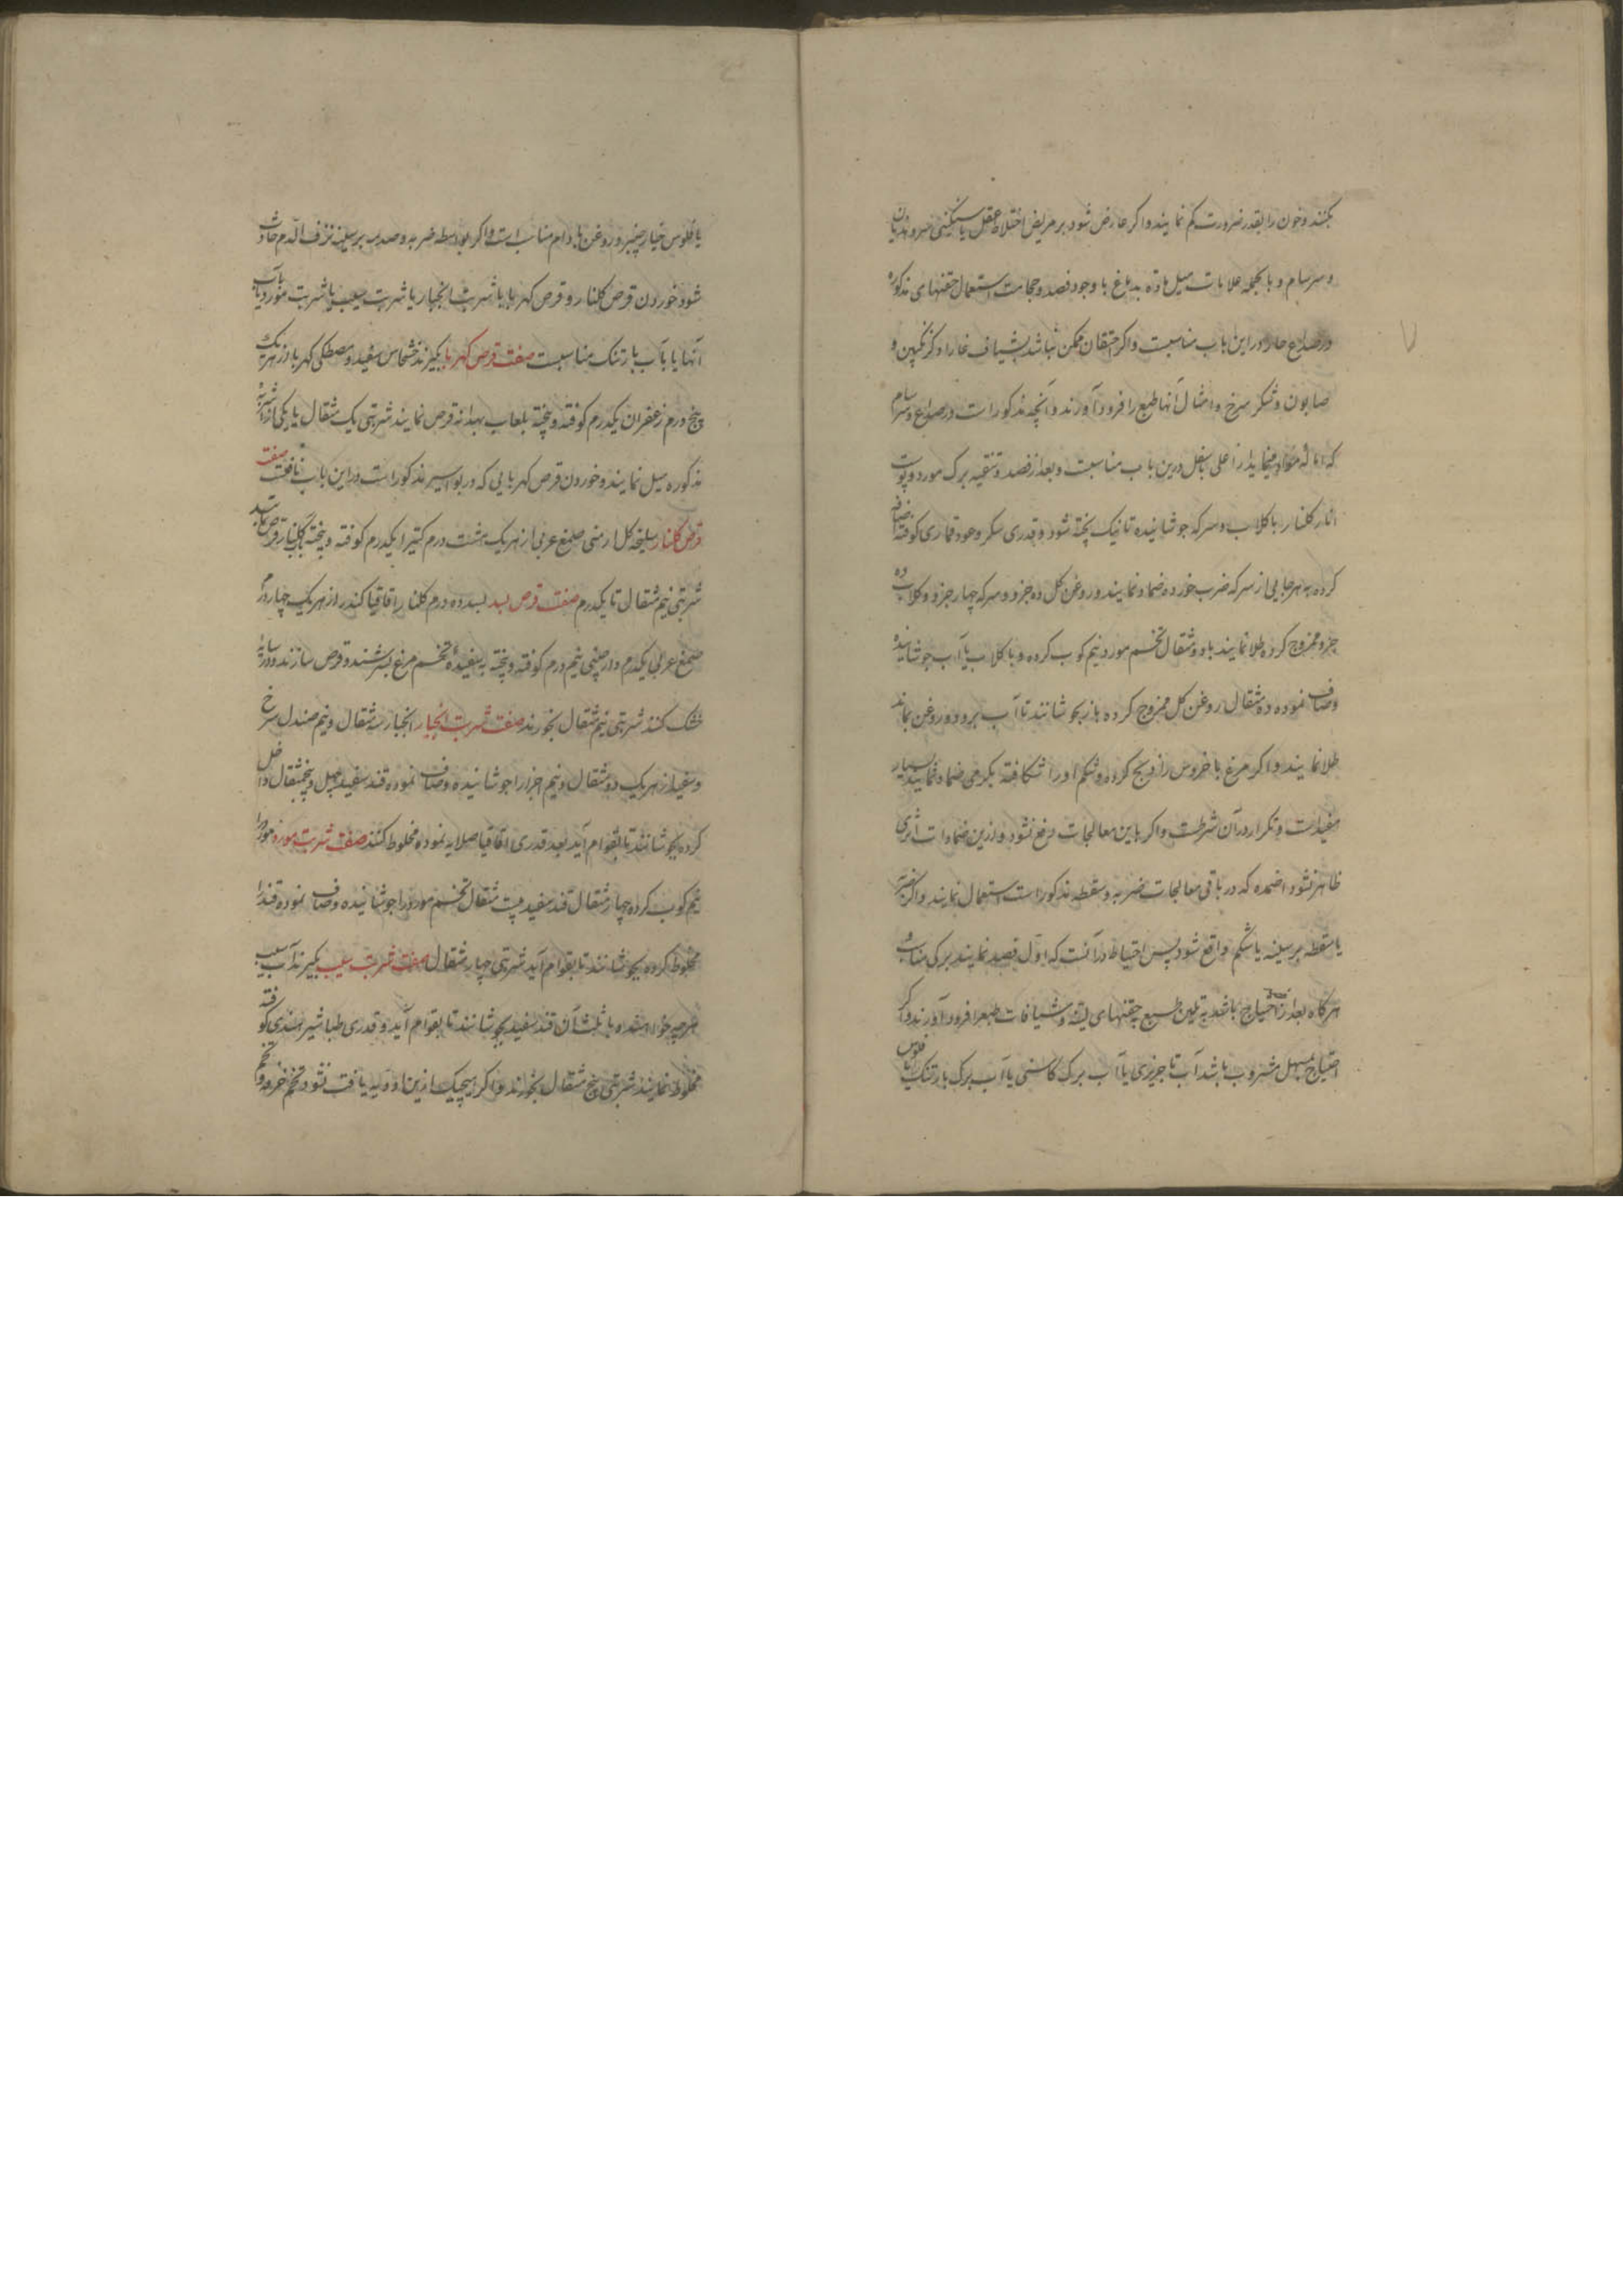 بکنند و خون را بقدر ضرورت کم نمایند و اکر عارض شود بر مریض اختلاط عقل یا سنکینی سر و هذیان
و سرسام و بالجمله علامات میل ماده بدماغ با وجود فصد و حجامت استعمال حقنهای مذکوره
در صداع حار در این باب مناسبست و اکر احتقان ممکن نباشد بشیاف خارا و کزنکبین و
صابون و شکر سرخ و امثال آنها طبع را فرود آورند و آنچه مذکور است در صداع و سرسام
که اماله مواد مینماید از اعلی باسفل درین باب مناسبست و بعد از فصد و تنقیه برک مورد و پوست
انار کلنار با کلاب و سرکه جوشانیده تا نیک پخته شود و قدری سکر و عود قماری کوفته اضافه
کرده بهر جایی از سر که ضرب خورده ضماد نمایند و روغن کل ده جزو و سرکه چهار جزو و کلاب ده
جزو ممزوج کرده طلا نمایند یا دو مثقال تخم مورد نیم کوب کرده و با کلاب یا آب جوشانیده
و صاف نموده ده مثقال روغن کل ممزوج کرده باز بجوشانند تا آب برود و روغن بماند
طلا نمایند و اکر مرغ یا خروس را ذبح کرده و شکم او را شکافته بکرمی ضماد نمایند بسیار
مفید است و تکرار در آن شرطست و اکر باین معالجات رفع نشود و ازین ضمادات اثری
ظاهر نشود اضمده که در باقی معالجات ضربه و سقطه مذکور است استعمال نمایند و اکر ضربه
یا سقطه بر سینه یا شکم واقع شود پس احتیاط در آنست که اول فصد نمایند برکی مناسب و
هرکاه بعد از فصد احتیاج باشد به تلیین طبیع بحقنهای لینه و شیافات طبع را فرود آورند و اکر
احتیاج بمسهل مشروب باشد آب تاجریزی یا آب برک کاسنی یا آب برک بارتنک با فلوس
یا فلوس خیارچنبر و روغن بادام مناسب است و اکر بواسطه ضربه و صدمه بر سینه نزف الدم حادث
شود خوردن قرص کلنار و قرص کهربا با شربت انجبار یا شربت سیب یا شربت مورد یا آب
آنها یا با آب بارتنک مناسبست صفت قرص کهربا بکیرند خشخاش سفید و مصطکی کهربا از هر یک
پنج درم زعفران یکدرم کوفته و بیخته بلعاب بهدانه قرص نمایند شربتی یک مثقال با یکی از اشربه
مذکوره میل نمایند و خوردن قرص کهربایی که در بواسیر مذکور است در این باب نافعست صفت
قرص کلنار سلیخه کل ارمنی صمغ عربی از هر یک هشت درم کتیرا یکدرم کوفته و بیخته بکلنار قرص سازند
شربتی نیم مثقال تا یکدرم صفت قرص بسد بسد ده درم کلنار اقاقیا کندر از هر یک چهار درم
صمغ عربی یکدرم دارچینی نیم درم کوفته و بیخته به سفیده تخم مرغ بسرشند و قرص سازند و در سایه
خشک کنند شربتی نیم مثقال بخورند صفت شربت انجبار انجبار سه مثقال و نیم صندل سرخ
و سفید از هر یک دو مثقال و نیم اجزا را جوشانیده و صاف نموده قند سفید چهل و پنج مثقال داخل
کرده بجوشانند تا بقوام آید بعد قدری اقاقیا صلایه نموده مخلوط کنند صفت شربت مورد مورد را
نیم کوب کرده چهار مثقال قند سفید بیست مثقال تخم مورد را جوشانیده و صاف نموده قند را
مخلوط کرده بجوشانند تا بقوام آید شربتی چهار مثقال صفت شربت سیب بکیرند آب سیب
هر چه خواهند و با ثلث آن قند سفید بجوشانند تا بقوام آید و قدری طباشیر هندی کوفته
مخلوط نمایند شربتی پنج مثقال بخورند و اکر هیچیک ازین ادویه یافت نشود تخم خرفه و تخم